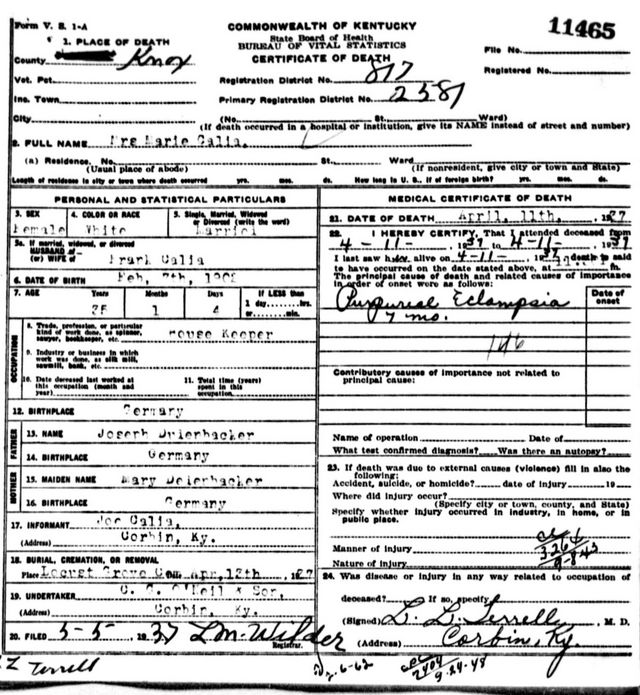 Form V. S. 1-A
COMMONWEALTH OF KENTUCKY
State Board of Health
BUREAU OF VITAL STATISTICS
CERTIFICATE OF DEATH
11465
File No.
Registered No.
1. PLACE OF DEATH
County Knox
Vot. Pct.
Inc. Town
City
Registration District No. 817
Primary Registration District No. 2381
(No. St. Ward)
(If death occurred in a hospital or institution, give its NAME instead of street and number)
2. FULL NAME Mrs Marie Galia,
(a) Residence. No. St. Ward
(Usual place of abode) (If nonresident, give city or town and State)
Length of residence in city or town where death occurred yrs. mos. ds. How long in U. S., if of foreign birth? yrs. mos. ds.
PERSONAL AND STATISTICAL PARTICULARS
3. SEX 4. COLOR OR RACE 5. Single, Married, Widowed or Divorced (write the word)
Female White Married
5a. If married, widowed, or divorced
HUSBAND of
(or) WIFE of Frank Galia
6. DATE OF BIRTH Feb, 7th,
7. AGE Years Months Days IF LESS than
1 day, hrs.
or min.
1 4
OCCUPATION
8. Trade, profession, or particular kind of work done, as spinner, sawyer, bookkeeper, etc. House Keeper
9. Industry or business in which work was done, as silk mill, sawmill, bank, etc.
10. Date deceased last worked at this occupation (month and year)
11. Total time (years) spent in this occupation
12. BIRTHPLACE Germany
FATHER
13. NAME Joseph
14. BIRTHPLACE Germany
MOTHER
15. MAIDEN NAME Mary
16. BIRTHPLACE Germany
17. INFORMANT Joe Galia,
(Address) Corbin, Ky.
18. BURIAL, CREMATION, OR REMOVAL
Place Locust Grove Date Apr, 12th, 1937
19. UNDERTAKER O'Neil & Son,
(Address) Corbin, Ky.
20. FILED 5-5 1937 L M Wilder
Registrar.
MEDICAL CERTIFICATE OF DEATH
21. DATE OF DEATH April, 11th, 1937
22. I HEREBY CERTIFY, That I attended deceased from
4-11-, 1937 to 4-11-, 1937
I last saw her alive on 4-11-, 1937 death is said
to have occurred on the date stated above, at m.
The principal cause of death and related causes of importance in order of onset were as follows:
Date of onset
Purpural Eclampsia
7 mo.
146
Contributory causes of importance not related to principal cause:
Name of operation Date of
What test confirmed diagnosis? Was there an autopsy?
23. If death was due to external causes (violence) fill in also the following:
Accident, suicide, or homicide? date of injury 19
Where did injury occur?
(Specify city or town, county, and State)
Specify whether injury occurred in industry, in home, or in public place.
Manner of injury
Nature of injury
3264
9-8-43
24. Was disease or injury in any way related to occupation of
deceased? If so, specify
(Signed) L. L. Terrell, M. D.
(Address) Corbin, Ky.
L Terrell
2404
9-24-48